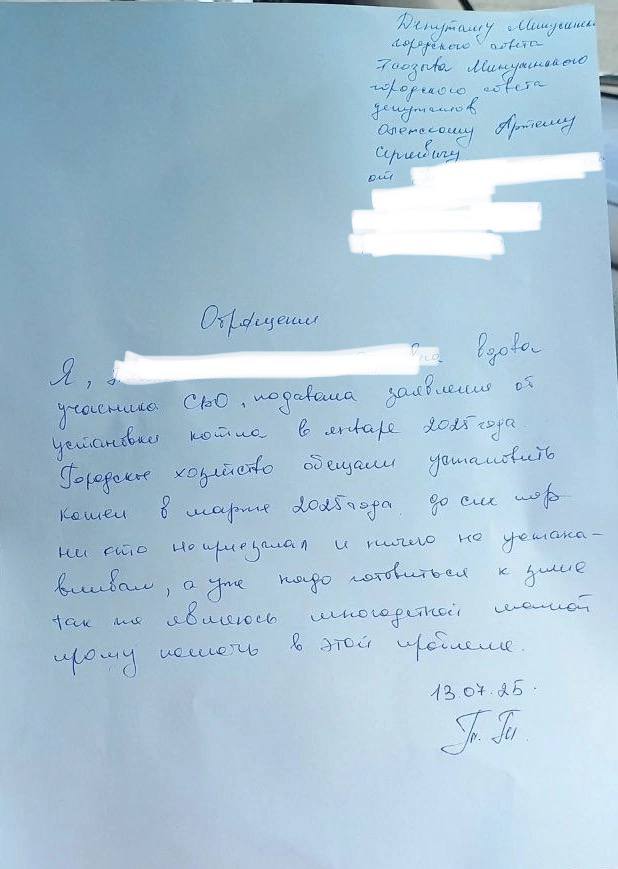 Депутату Минусинск
городского совета
7 созыва Минусинского
городского совета
депутатов
Артему
Сергеевичу
от
Обращение
Я, вдова
участника СВО, подавала заявление от
установки котла в январе 2025 года.
Городское хозяйство обещали установить
кошел в марте 2025 года. до сих пор
ни кто не приезжал и ничего не устана-
вливал, а уже надо готовиться к зиме
так же являюсь многодетной мамой
прошу помочь в этой проблеме.
13.07.25.